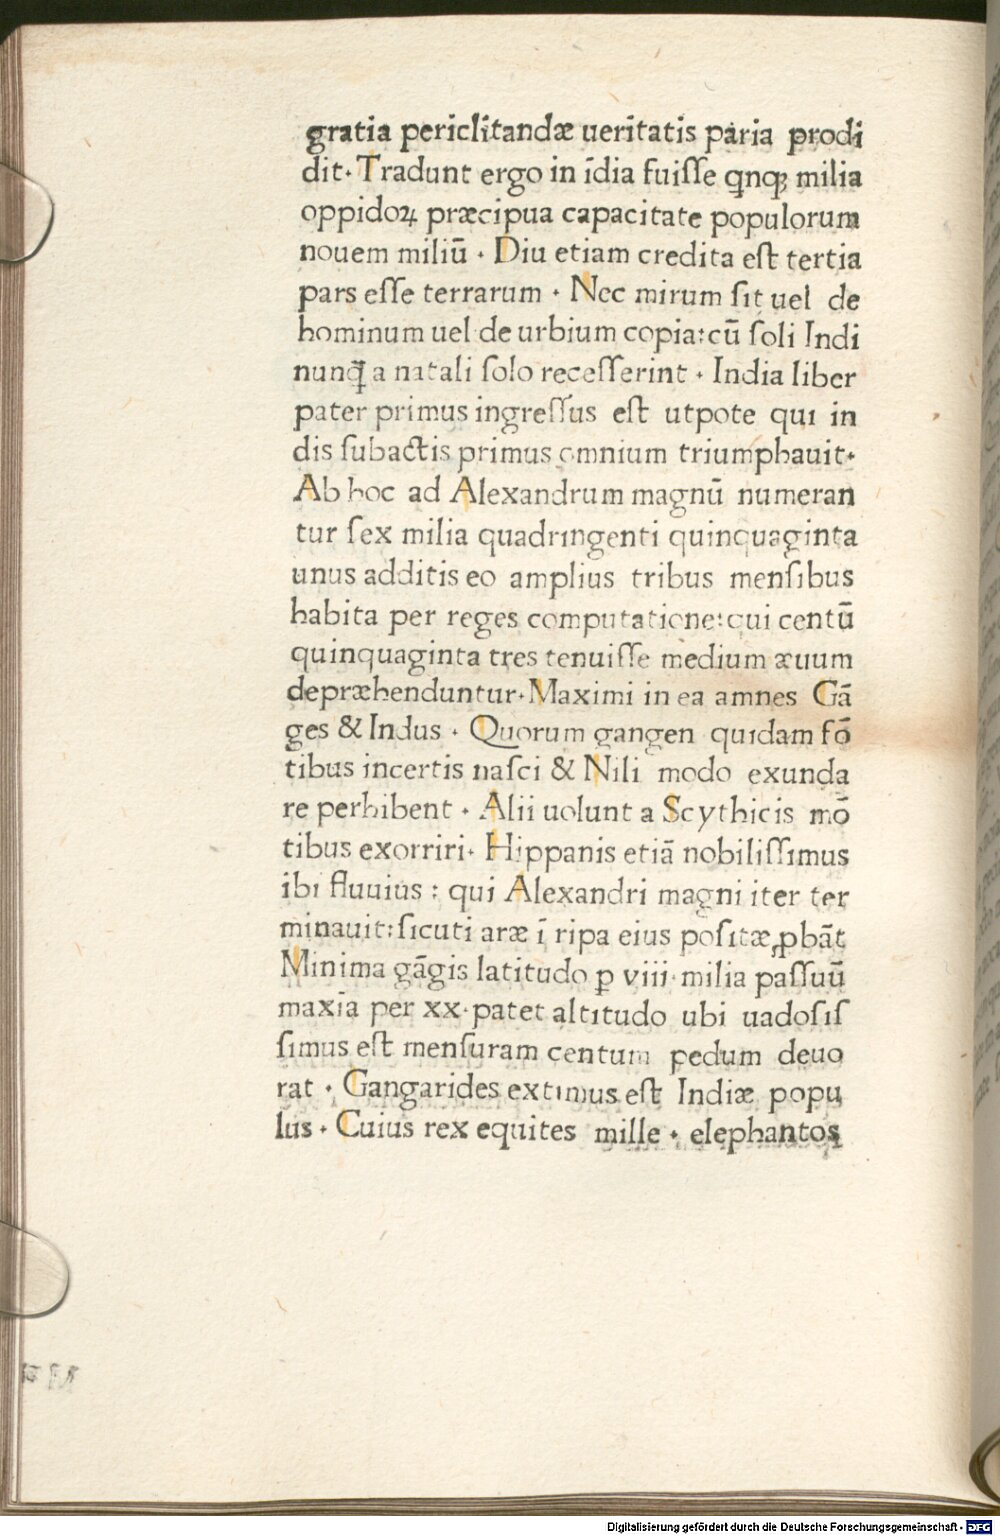 gratia periclitandæ ueritatis paria prodi
dit· Tradunt ergo in īdia fuiſſe qnqꝫ milia
oppidoꝝ præcipua capacitate populorum
nouem miliū · Diu etiam credita eſt tertia
pars eſſe terrarum · Nec mirum ſit uel de
hominum uel de urbium copia:cū ſoli Indi
nunq̄ a natali ſolo receſſerint · India liber
pater primus ingreſſus eſt utpote qui in
dis ſubactis primus omnium triumphauit·
Ab hoc ad Alexandrum magnū numeran
tur ſex milia quadringenti quinquaginta
unus additis eo amplius tribus menſibus
habita per reges computatione:qui centū
quinquaginta tres tenuiſſe medium æuum
depræhenduntur· Maximi in ea amnes Gā
ges & Indus · Quorum gangen quidam fō
tibus incertis naſci & Nili modo exunda
re perhibent · Alii uolunt a Scythicis mō
tibus exorriri· Hippanis etiā nobiliſſimus
ibi fluuius : qui Alexandri magni iter ter
minauit:ſicuti aræ ī ripa eius poſitæ ꝓbāt
Minima gāgis latitudo ꝑ viii· milia paſſuū
maxīa per xx· patet altitudo ubi uadoſiſ
ſimus eſt menſuram centum pedum deuo
rat · Gangarides extimus eſt Indiæ popu
lus · Cuius rex equites mille · elephantos
Digitalisierung gefördert durch die Deutsche Forschungsgemeinschaft - DFG